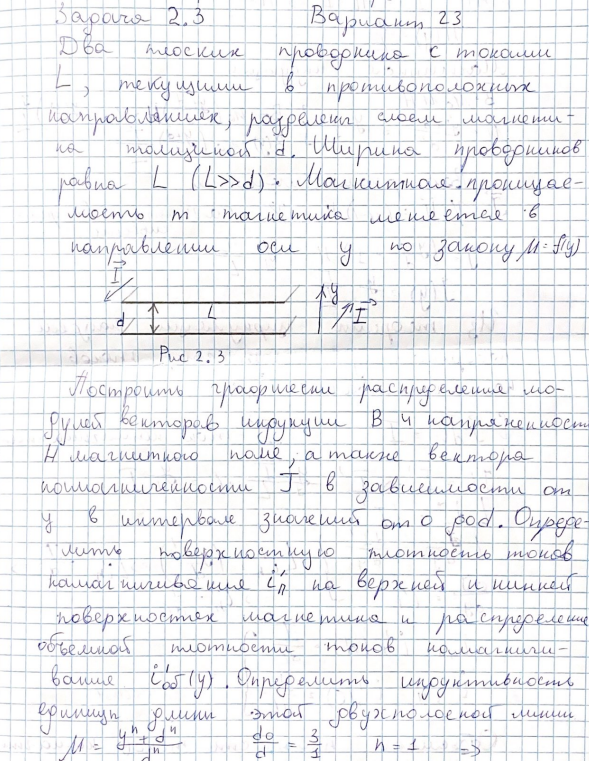 Задача 2.3 Вариант 23
Два плоских проводника с токами
L, текущими в противоположных
направлениях, разделены слоем магнети-
ка толщиной d. Ширина проводников
равна L (L>>d). Магнитная проницае-
мость m магнетика меняется в
направлении оси y по закону μ=f(y)
I
y
d L I
Рис 2.3
Построить графически распределения мо-
дулей векторов индукции B и напряженност
H магнитного поля, а также вектора
намагниченности J в зависимости от
y в интервале значений от 0 до d. Опреде-
лить поверхностную плотность токов
намагничивания i'п на верхней и нижней
поверхностях магнетика и распределение
объемной плотности токов намагничи-
вания i'об(y). Определить индуктивность
единицы длины этой двухполосной линии
M = (yⁿ + dⁿ)/dⁿ do/d = 3/1 n = 1 =>